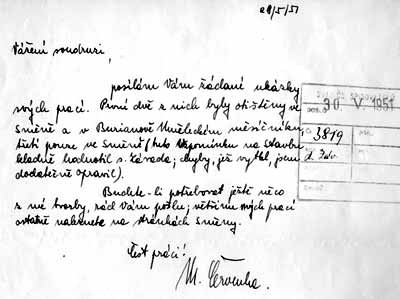 28/5/51
Vážení soudruzi,
posílám Vám žádané ukázky
svých prací. První dvě z nich byly otištěny ve
Směně a v Burianově Uměleckém měsíčníku,
třetí pouze ve Směně (tuto Vzpomínku na stavbu
kladně hodnotil s. Závada; chyby, jež vytkl, jsem
dodatečně opravil).
Budete-li potřebovat ještě něco
z mé tvorby, rád Vám pošlu; většinu mých prací
ostatně naleznete na stránkách Směny.
Čest práci!
M. Červenka.
30 V. 1951
3819